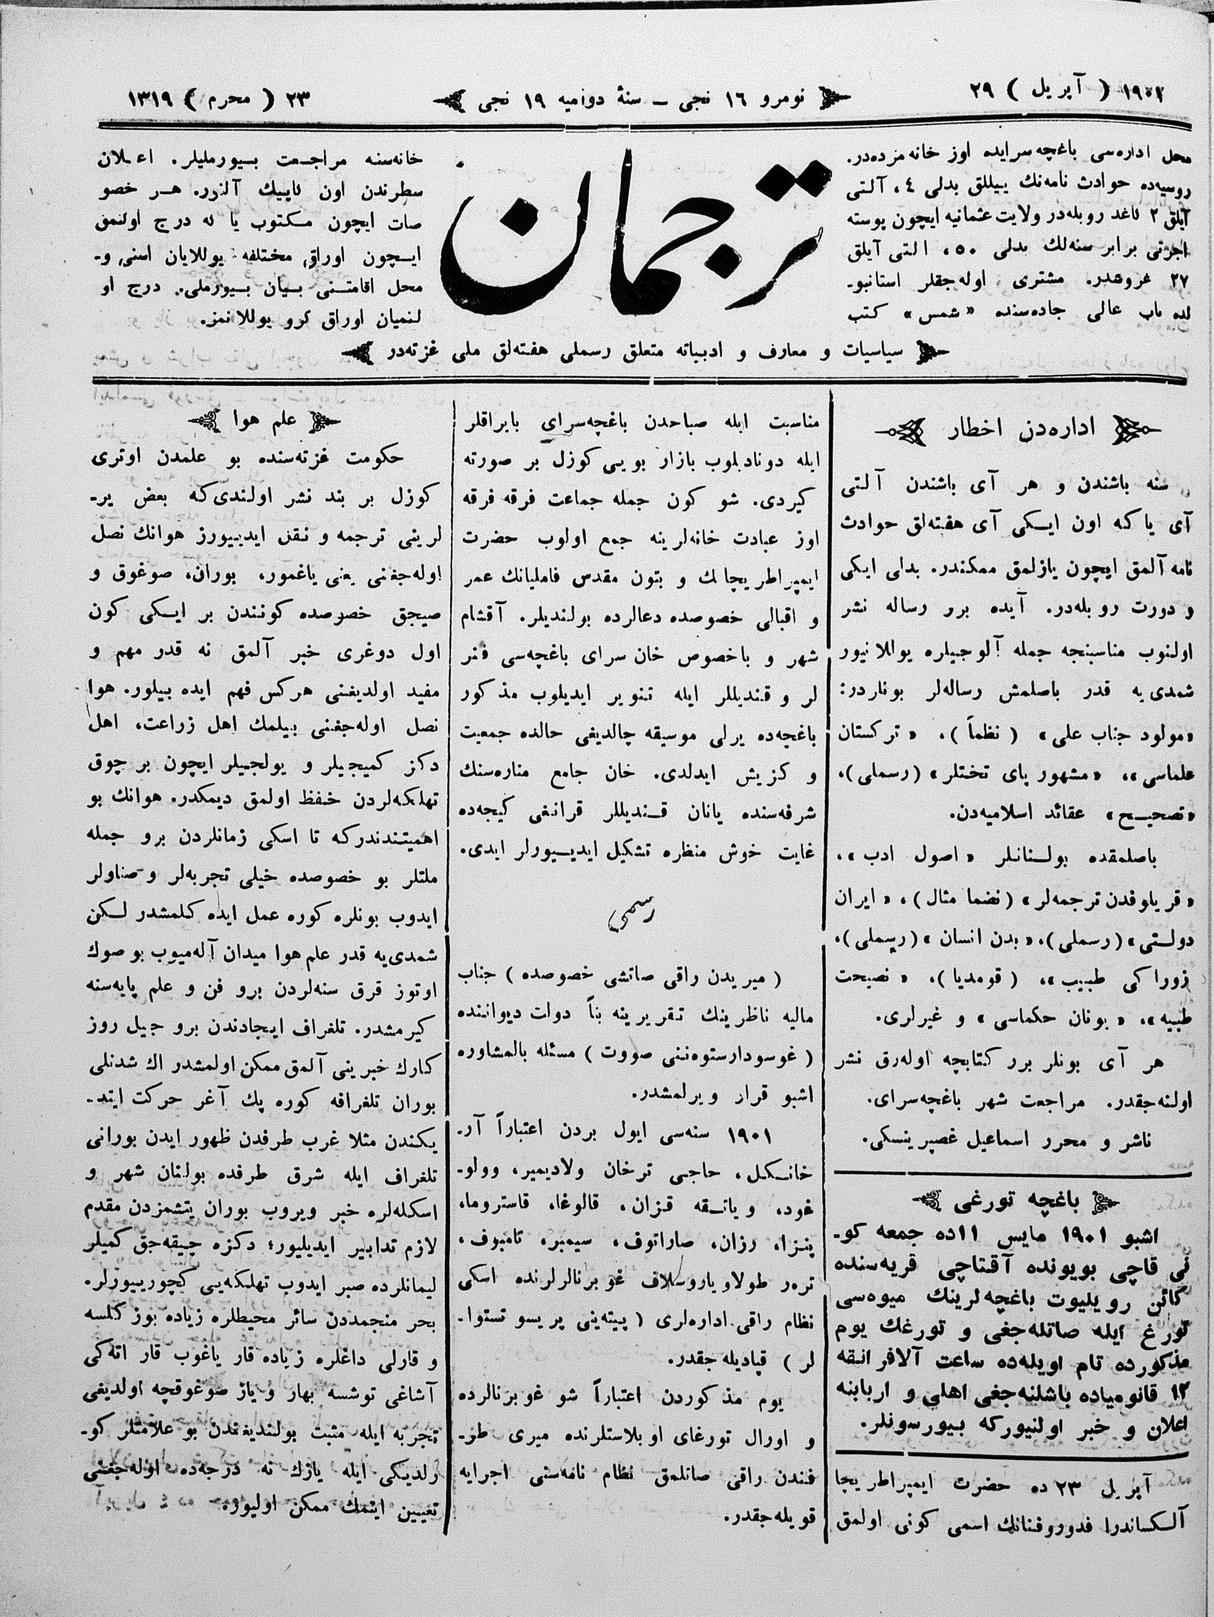 ١٩٠١ ( آپريل ) ٢٩
نومرو ١٦ نجی ـ سنهٔ دواميه ١٩ نجی
٢٣ ( محرم ) ١٣١٩
محل اداره‌سی باغچه‌سرايده اوز خانه‌مزده‌در.
روسيه‌ده حوادث نامه‌نك ييللق بدلی ٤، آلتی
آيلق ٢ كاغد روبله‌در ولايت عثمانيه ايچون پوسته
اجرتی برابر سنه‌لك بدلی ٥٠، التی آيلق
٢٧ غروشدر. مشتری اوله‌جقلر استانبو-
لده باب عالی جاده‌سنده «شمس» كتب
ترجمان
خانه‌سنه مراجعت بيورمليلر. اعلان
سطرندن اون كاپيك آلنور. هر خصو
صات ايچون مكتوب يا كه درج اولنمق
ايچون اوراق مختلفه يوللايان اسنی و-
محل اقامتنی بيان بيورملی. درج او
لنميان اوراق كرو يوللانمز.
سياسيات و معارف و ادبياته متعلق رسملی هفته‌لق ملی غزته‌در
اداره‌دن اخطار
سنه باشندن و هر آی باشندن آلتی
آی ياكه اون ايكی آی هفته‌لق حوادث
نامه آلمق ايچون يازلمق ممكندر. بدلی ايكی
و دورت روبله‌در. آيده برو رساله نشر
اولنوب مناسبنجه جمله آلوجيلره يوللانيور
شمدی‌يه قدر باصلمش رساله‌لر بوناردر:
«مولود جناب علی» (نظماً)، «تركستان
علماسی»، «مشهور پای تختلر» (رسملی)،
«تصحيح» عقائد اسلاميه‌دن.
باصلمقده بولنانلر «اصول ادب»،
«قريلوفدن ترجمه‌لر» (نضما مثال)، «ايران
دولتی» (رسملی)، «بدن انسان» (رسملی)،
زوراكی طبيب»، (قومديا)، «نصيحت
طبيه»، «يونان حكماسی» و غيرلری.
هر آی بونلر برر كتابچه اوله‌رق نشر
اولنه‌جقدر. مراجعت شهر باغچه‌سرای.
ناشر و محرر اسماعيل غصپرينسكی.
باغچه تورغی
اشبو ١٩٠١ مايس ١١ده جمعه كو-
نی قاچی بويونده آقتاچی قريه‌سنده
كائن رويليوت باغچه‌لرينك ميوه‌سی
تورغ ايله صاتله‌جغی و تورغك يوم
مذكورده تام اويله‌ده ساعت آلافرانقه
١٢ قانوميا‌ده باشلنه‌جغی اهلی و اربابنه
اعلان و خبر اولنيوركه بيورسونلر.
آپريل ٢٣ ده حضرت ايمپراطريچا
آلكساندرا فدوروفنانك اسمی كونی اولمق
مناسبت ايله صباحدن باغچه‌سرای بايراقلر
ايله دونادبلوب بازار بويی كوزل بر صورته
كيردی. شو كون جمله جماعت فرقه فرقه
اوز عبادت خانه‌لرينه جمع اولوب حضرت
ايمپراطريچانك و بتون مقدس فاميليانك عمر
و اقبالی خصوصده دعالرده بولنديلر. آقشام
شهر و باخصوص خان سرای باغچه‌سی فنر
لر و قنديللر ايله تنوير ايديلوب مذكور
باغچه‌ده يرلی موسيقه چالديغی حالده جمعيت
و كزيش ايدلدی. خان جامع مناره‌سنك
شرفه‌سنده يانان قنديللر قرانغی كيجه‌ده
غايت خوش منظره تشكيل ايديورلر ايدی.
رسمی
(ميريدن راقی صاتشی خصوصده) جناب
ماليه ناظرينك تقريرينه بناً دولت ديواننده
(غوسودارستوه‌ننی صووت) مسئله بالمشاوره
اشبو قرار ويرلمشدر.
١٩٠١ سنه‌سی ايول بردن اعتباراً آر-
خانكل، حاجی ترخان ولاديمير، وولو-
غود، وياتقه قزان، قالوغا، قاستروما،
پنزا، رزان، صاراتوف، سيمبر، تامبوف،
تره‌ر طولا و ياروسلاف غوبرنالرلرنده اسكی
نظام راقی اداره‌لری (پيته‌ينی پريسو تستوا-
لر) قپاديله‌جقدر.
يوم مذكوردن اعتباراً شو غوبرنالرده
و اورال تورغای اوبلاستلرنده ميری طر-
فندن راقی صاتلمق نظام نامه‌سنی اجرايه
قويله‌جقدر.
علم هوا
حكومت غزته‌سنده بو علمدن اوتری
كوزل بر بند نشر اولندی‌كه بعض ير-
لرينی ترجمه و نقل ايدييورز هوانك نصل
اوله‌جغنی يعنی ياغمور، بوران، صوغوق و
صيجق خصوصده كونندن بر ايكی كون
اول دوغری خبر آلمق نه قدر مهم و
مفيد اولديغنی هركس فهم ايده بيلور. هوا
نصل اوله‌جغنی بيلمك اهل زراعت، اهل
دكز كميجيلر و يولجيلر ايچون بر چوق
تهلكه‌لردن حفظ اولمق ديمكدر. هوانك بو
اهميتندندركه تا اسكی زمانلردن برو جمله
ملتلر بو خصوصده خيلی تجربه‌لر و صناولر
ايدوب بونلره كوره عمل ايده كلمشدر لكن
شمدی‌يه قدر علم هوا ميدان آله‌ميوب بو صوك
اوتوز قرق سنه‌لردن برو فن و علم پايه‌سنه
كيرمشدر. تلغراف ايجادندن برو جيل روز
كارك خبرينی آلمق ممكن اولمشدر اك شدتلی
بوران تلغرافه كوره پك آغر حركت ايتد-
يكندن مثلا غرب طرفدن ظهور ايدن بورانی
تلغراف ايله شرق طرفده بولنان شهر و
اسكله‌لره خبر ويروب بوران يتشمزدن مقدم
لازم تدابير ايديليور؛ دكزه چيقه‌جق كميلر
ليمانلرده صبر ايدوب تهلكه‌يی كچورييورلر.
بحر منجمددن سائر محيطلره زياده بوز كلسه
و قارلی داغلره زياده قار ياغوب قار اتكی
آشاغی توشسه بهار و ياز صوغوقچه اولديغی
تجربه ايله مثبت بولنديغندن بو علامتلر كو-
رلديكی ايله يازك نه درجه‌ده اوله‌جغنی
تعيين ايتمك ممكن اوليور.